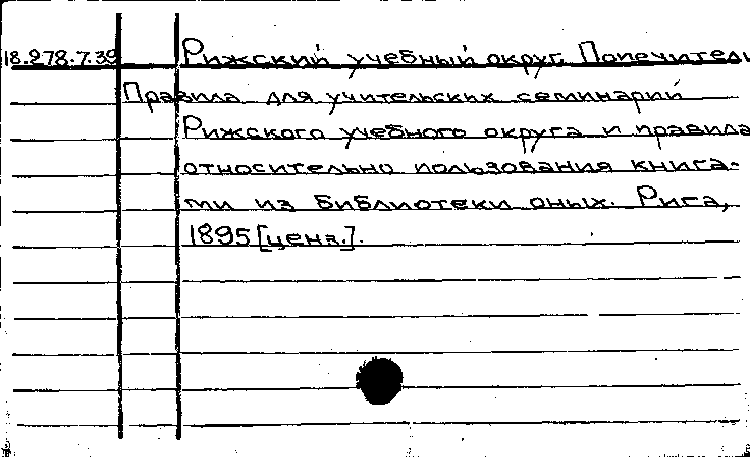 18.278.7.39 Рижский учебный округ. Попечитель
Правила для учительских семинарий
Рижского учебного округа и правила
относительно пользования книга-
ми из библиотеки оных. Рига,
1895 [ценз.].